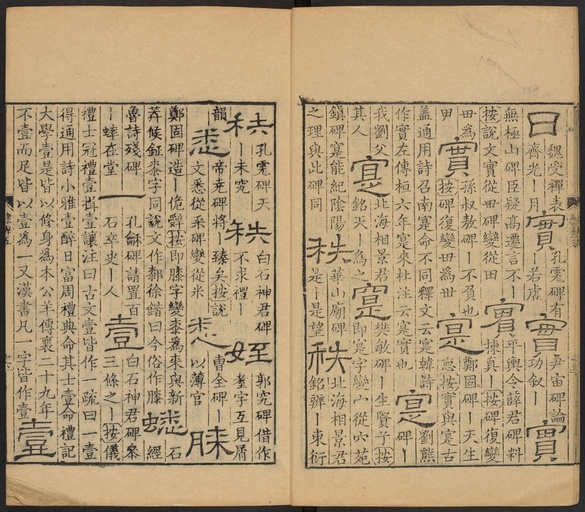 日 魏受禪表齊光｜月 實 孔彪碑有｜若虛 實 尹宙碑論功敘｜ 實
無極山碑臣疑高遷言不｜
按說文實從毌碑變從田 實 平輿令薛君碑料揀真｜按碑復變
毌為世 實 孫叔敖碑｜不負也
按碑復變毌為世 寔 鄭固碑｜天生惠按實與寔古
蓋通用詩召南寔命不同釋文云寔韓詩
作實左傳桓六年寔來杜注云寔實也 寔 劉熊碑｜
我劉父 寔 北海相景君銘天｜為之 寔 樊敏碑｜生賢子按
其人 即寔字變宀從穴苑
鎮碑寔能紀陰陽
之理與此碑同 秩 華山廟碑是｜是望 秩 北海相景君銘辨｜東衍
秩 孔彪碑天｜未究 秩 白石神君碑不求禮｜ 姪 郭究碑借作耋字互見質
韻 悉 帝堯碑將｜臻矣按說
文悉從釆碑變從米 悉 曹全碑｜以薄官 膝
鄭固碑造｜佹辭按即膝字變桼為來與新
莽候鉦桼字同說文作厀徐鍇曰今俗作膝 蟋 石經
魯詩殘碑｜蟀在堂 一 孔龢碑請置百石卒史｜人 壹 白石神君碑參三條之｜按儀
禮士冠禮壹揖壹讓注曰古文壹皆作一疏曰一壹
得通用詩小雅壹醉日富周禮典命其士壹命禮記
大學壹是皆以修身為本公羊傳襄二十九年
不壹而足皆以壹為一又漢書凡一字皆作壹 壹